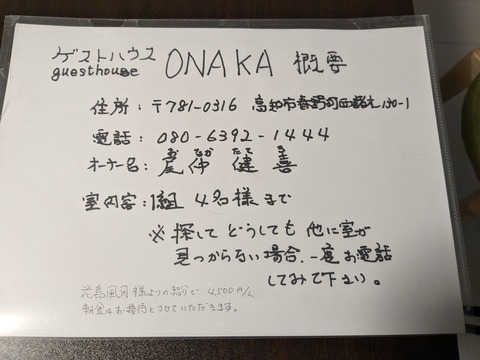 ゲストハウス ONAKA 概要
guesthouse
住所：〒781-0316 高知市春野町西諸木130-1
電話：080-6392-1444
オーナー名：尾仲 健喜
おなか たてき
室内容：1組 4名様まで
※探して どうしても 他に室が
見つからない場合、一度お電話
してみて下さい。
花鳥風月様よりの紹介で 4,500円/人
朝食はお接待とさせていただきます。